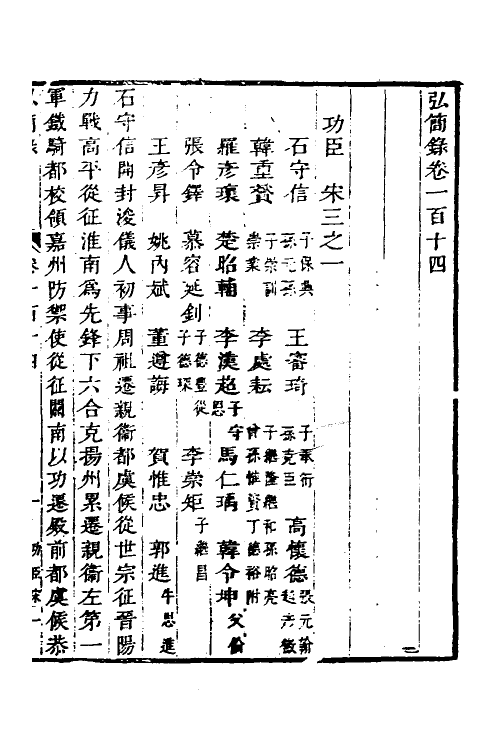 弘簡錄卷一百十四
功臣 宋三之一
石守信 子保興 孫元孫 王審琦 子承衍 孫克臣 高懷德
韓重贇 子崇訓 崇業 李處耘 子繼隆 繼和 孫昭亮 曾孫惟賢 丁德裕附
羅彥瓌 楚昭輔 李漢超 子守恩 馬仁瑀 韓令坤 父倫
張令鐸 慕容延釗 子德豐 從子德琛 李崇矩 子繼昌
王彥昇 姚內斌 董遵誨 賀惟忠 郭進 牛思進
石守信開封浚儀人初事周祖遷親衛都虞候從世宗征晉陽
力戰高平從征淮南為先鋒下六合克揚州累遷親衛左第一
軍鐵騎都校領嘉州防禦使從征關南以功遷殿前都虞候恭